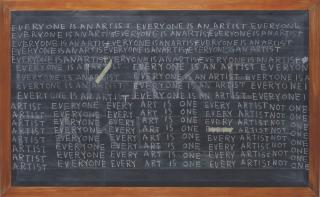 EVERYONE IS AN ARTIST EVERYONE IS AN ARTIST EVERYONE
EVERYONE IS AN ARTIST EVERYONE IS AN ARTIST EVERYONE
EVERYONE IS AN ARTIST EVERYONE IS AN ARTIST EVERYONE IS AN ARTIST
EVERYONE IS AN ARTIST EVERYONE IS AN ARTIST
EVERYONE IS AN ARTIST EVERYONE IS AN ARTIST EVERYONE
EVERYONE IS AN ARTIST EVERYONE IS AN ARTIST
EVERYONE IS AN ARTIST EVERYONE IS AN ARTIST EVERYONE IS
EVERYONE IS AN ARTIST EVERYONE
EVERYONE IS AN ARTIST EVERYONE IS AN ARTIST EVERYONE
ARTIST EVERYONE EVERY ART IS ONE EVERY ARTIST NOT ONE
ARTIST EVERYONE EVERY ART IS ONE EVERY ARTIST NOT ONE
ARTIST EVERYONE EVERY ART IS ONE EVERY ARTIST NOT ONE
ARTIST EVERYONE EVERY ART IS ONE EVERY ARTIST NOT ONE
ARTIST EVERYONE EVERY ART IS ONE EVERY ARTIST NOT ONE
ARTIST EVERYONE EVERY ART IS ONE EVERY ARTIST NOT ONE
ARTIST EVERYONE EVERY ART IS ONE EVERY ARTIST NOT ONE
ARTIST EVERYONE EVERY ART IS ONE EVERY ARTIST NOT ONE